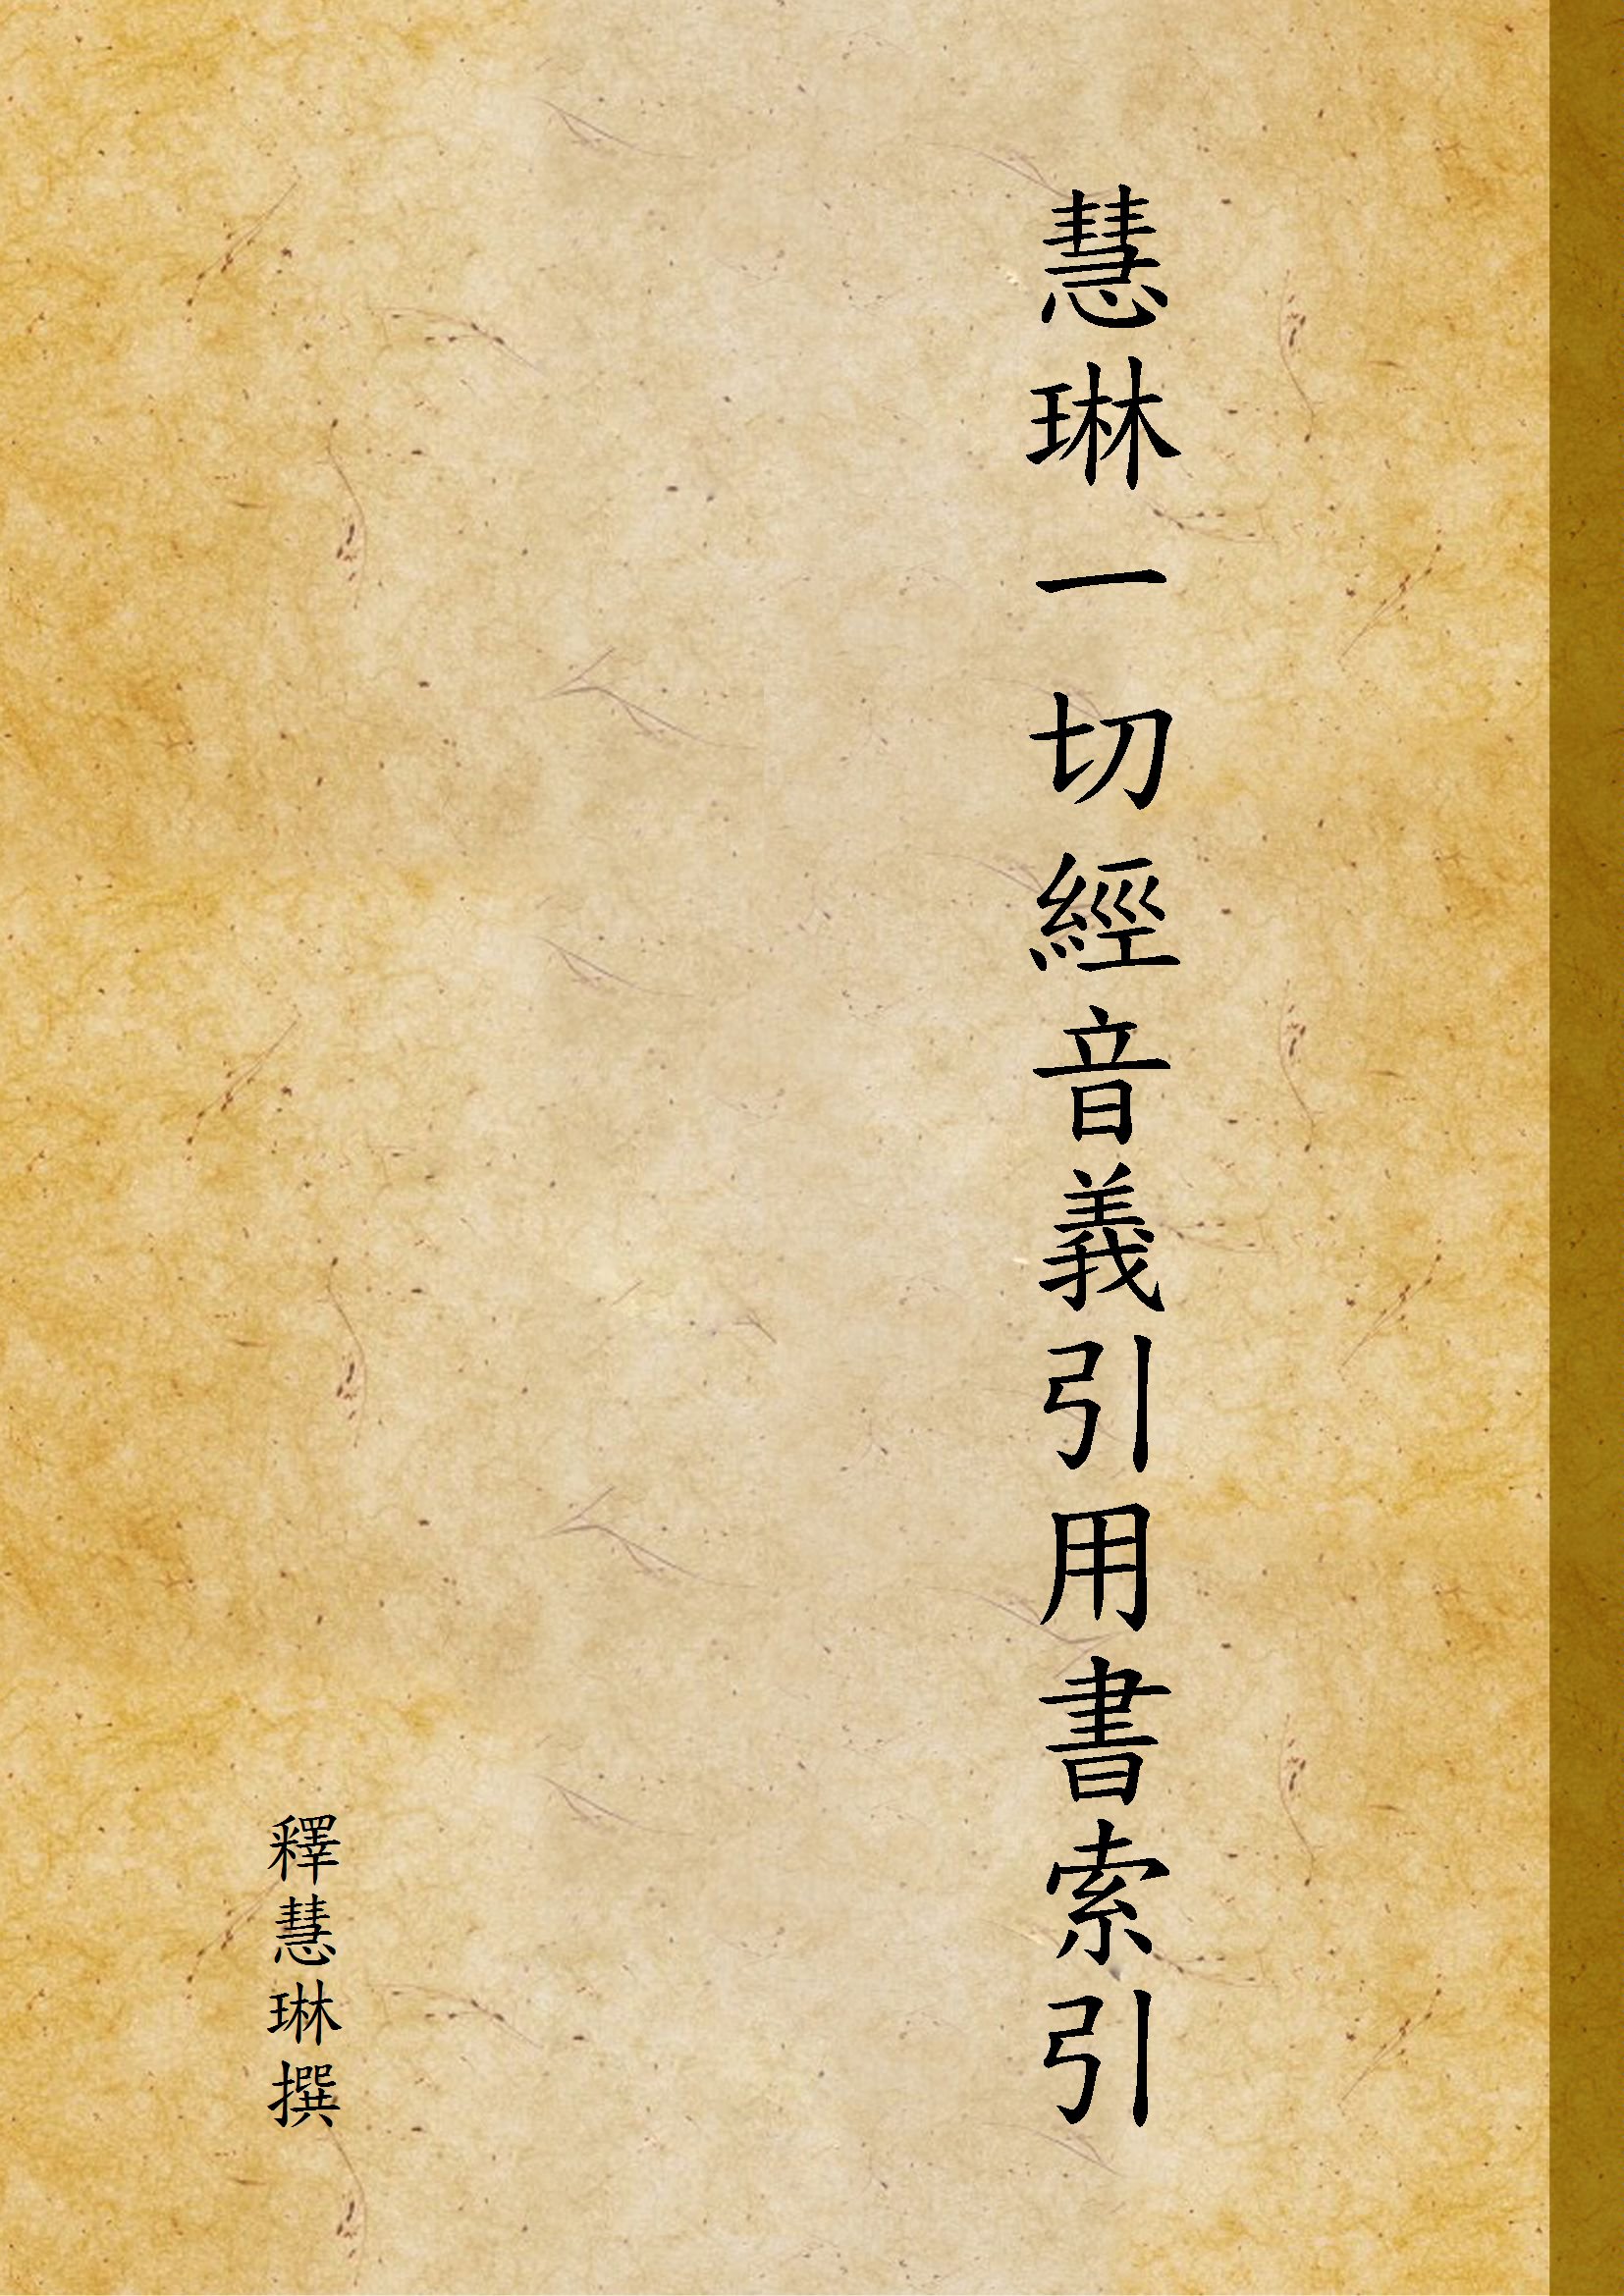 慧琳一切經音義引用書索引
釋慧琳撰